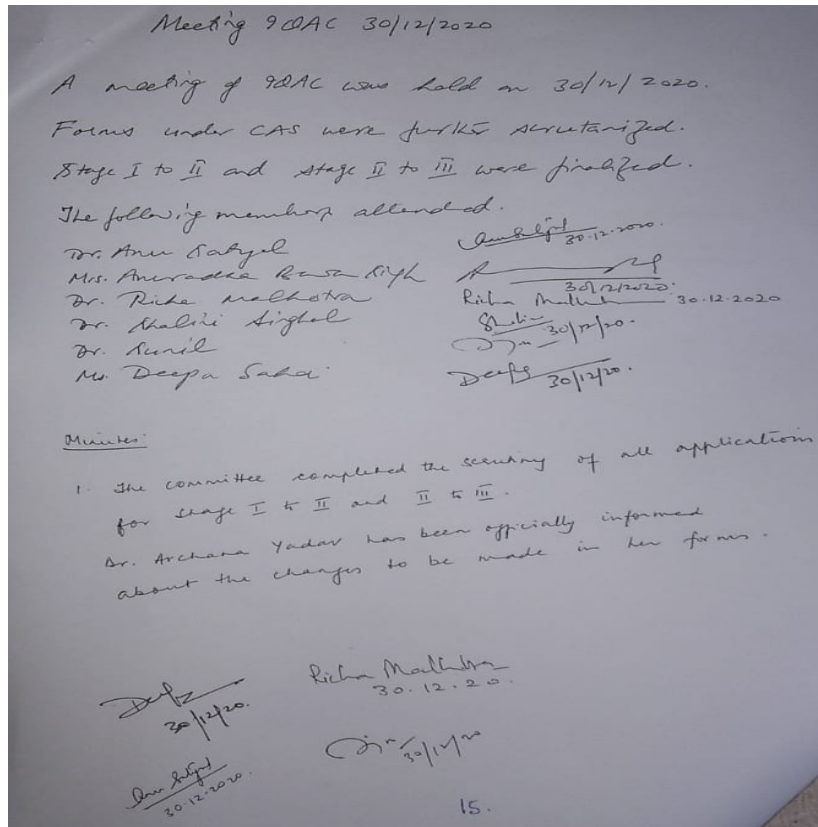 Meeting IQAC 30/12/2020
A meeting of IQAC was held on 30/12/2020.
Forms under CAS were further scrutanized.
Stage I to II and stage II to III were finalized.
The following members attended.
Dr. Anu Satyal
30-12-2020.
Mrs. Anuradha Basa Singh
30/12/2020.
Dr. Richa Malhotra Richa Malhotra 30-12-2020
Dr. Shalini Singhal Shalini 30/12/20.
Dr. Sunil
Ms. Deepa Saha Deepa 30/12/20.
Minutes:
1. The committee completed the scrutiny of all applications
for stage I to II and II to III.
Dr. Archana Yadav has been officially informed
about the changes to be made in her forms.
Deepa
30/12/20.
Richa Malhotra
30.12.20.
Anu Satyal
30-12-2020.
30/12/20
15.